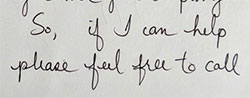 So, if I can help
please feel free to call